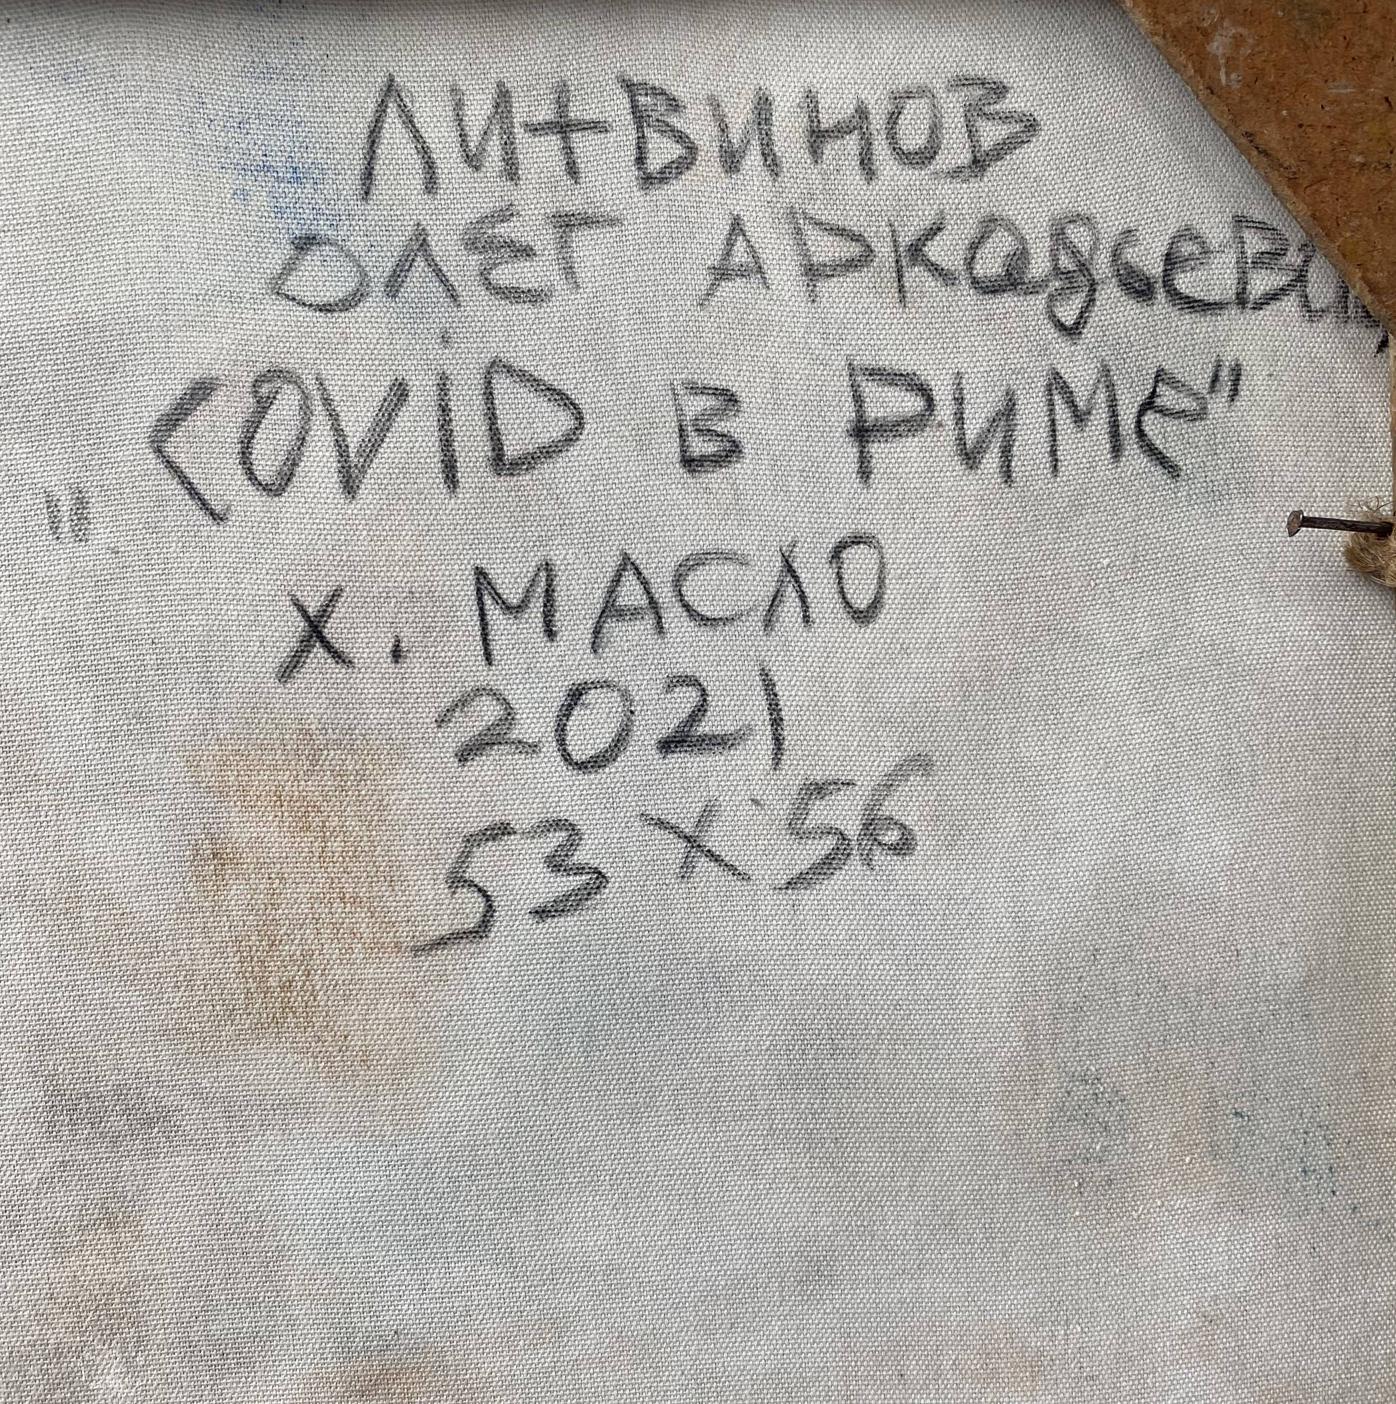 ЛИТВИНОВ
ОЛЕГ АРКадьевич
"COViD В РИМЕ"
Х. МАСЛО
2021
53 х 56